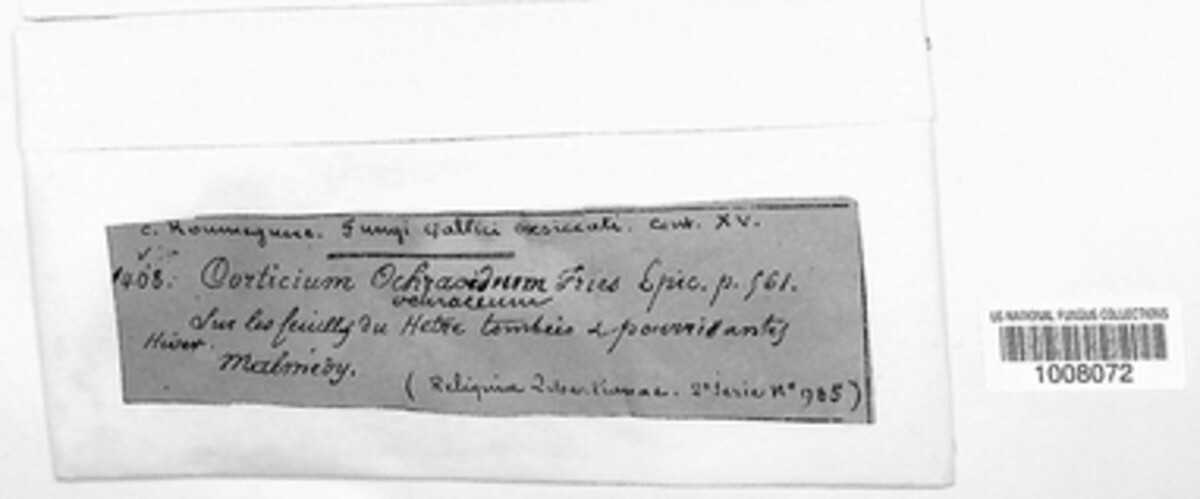 C. Roumeguere. Fungi Gallici exsiccati. Cent. XV.
1408. Corticium Ochraceum Fries Epic. p. 561.
ochraceum
Sur les feuilles du Hetre tombées & pourrissantes
Hiver.
Malmédy.
(Reliquiae Libertianae. 2e Serie No 985)
US NATIONAL FUNGUS COLLECTIONS
1008072